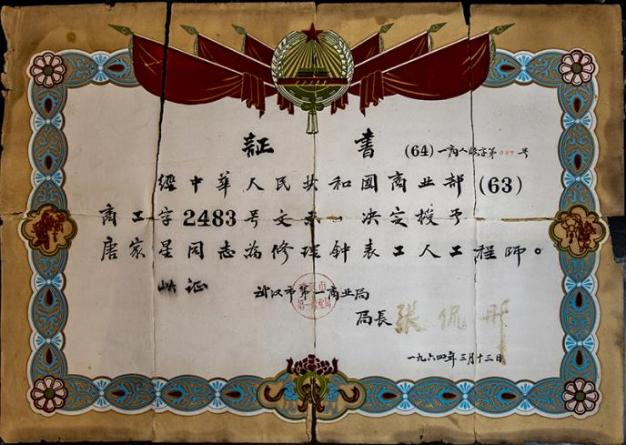 証書
(64) 一商人 字第 号
經中華人民共和國商业部(63)
商工字2483号文 ，决定授予
唐家星同志為修理钟表工人工程師。
此证
武汉市第一商业局
局長 張侃
一九六四年三月十三日